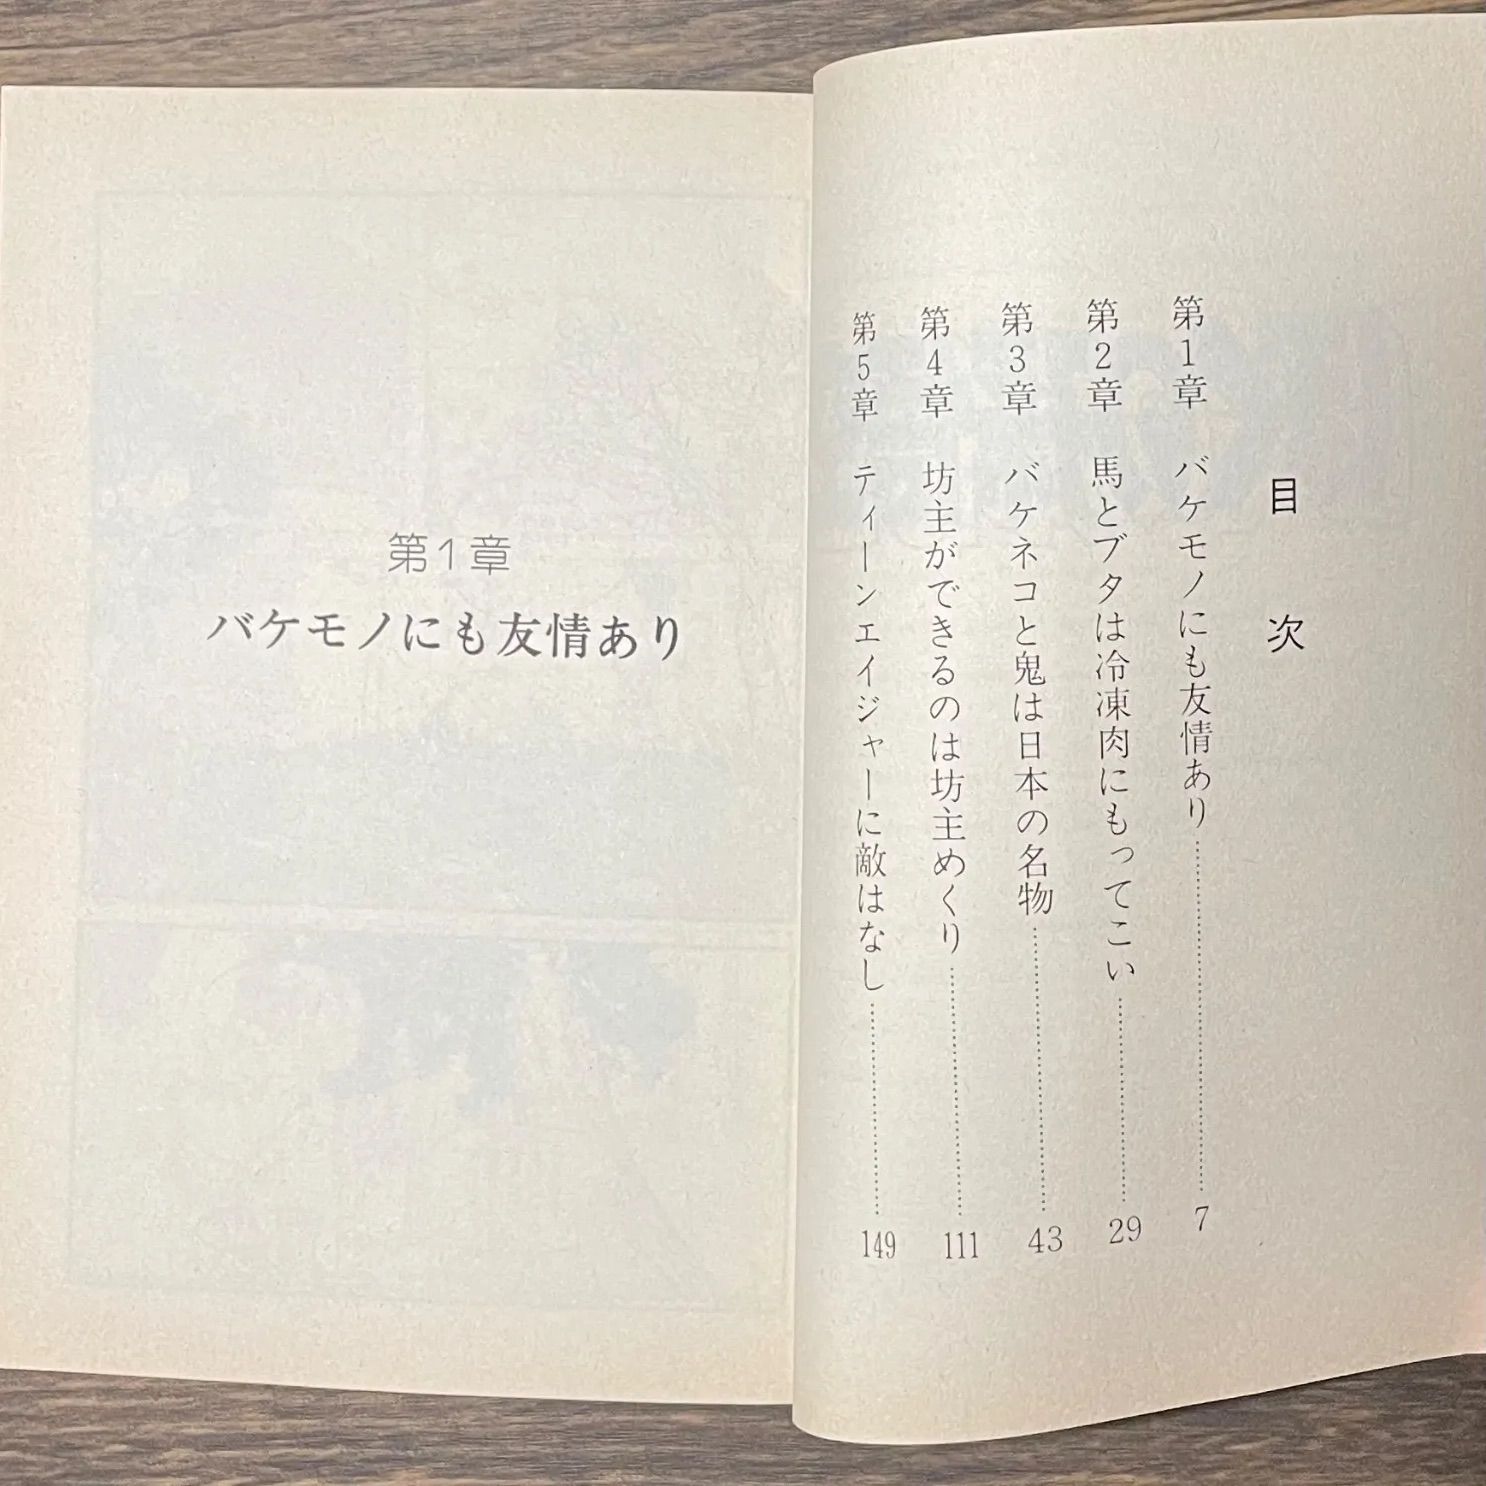 目次
第1章 バケモノにも友情あり 7
第2章 馬とブタは冷凍肉にもってこい 29
第3章 バケネコと鬼は日本の名物 43
第4章 坊主ができるのは坊主めくり 111
第5章 ティーンエイジャーに敵はなし 149
第1章
バケモノにも友情あり